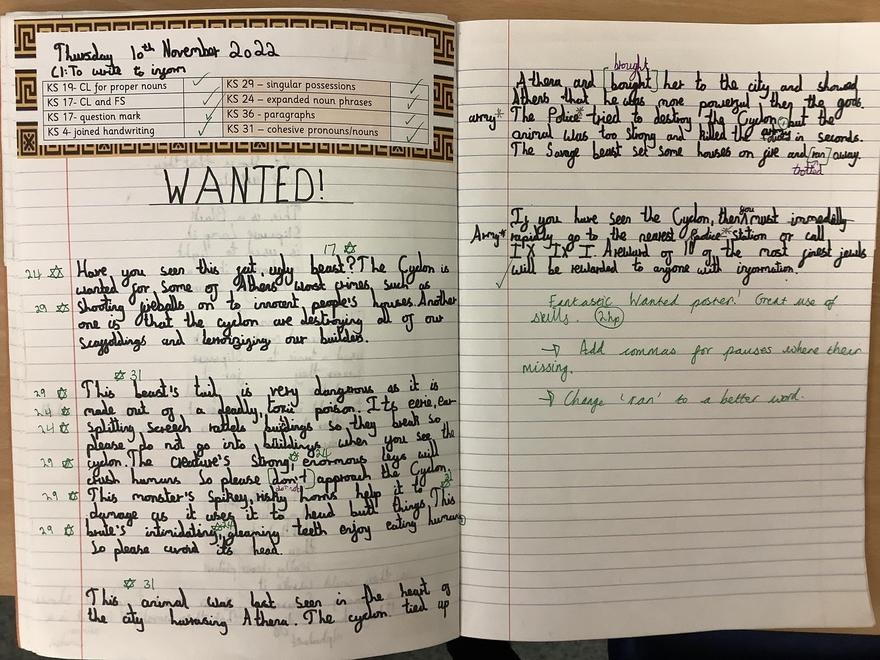 Thursday 10th November 2022
CI: To write to inform
KS 19- CL for proper nouns
KS 29 – singular possessions
KS 17- CL and FS
KS 24 – expanded noun phrases
KS 17- question mark
KS 36 - paragraphs
KS 4- joined handwriting
KS 31 – cohesive pronouns/nouns
WANTED!
17
24 Have you seen this fat, ugly beast? The Cyclon is
wanted for some of Athens worst crimes, such as
29 Shooting fireballs on to innocent people's houses. Another
one is that the cyclon are destroying all of our
Scaffoldings and terrorizing our builders.
31
29 This beast's tail is very dangerous as it is
24 made out of a deadly, toxic poison. Its eerie, ear-
24 Splitting screech rattels buildings so they break so
please do not go into buildings when you see the
24
29 cyclon. The creature's strong, enormous legs will
crush humans. So please [don't] approach the Cyclon.
do not
31
29 This monster's Spikey, risky horns help it to
damage as it uses it to head butt things. This
24
29 brute's intimidating, gleaming teeth enjoy eating humans
So please avoid its head.
31
This animal was last seen in the heart of
the city harrasing Athera. The cyclon tied up
brought
Athera and [bought] her to the city and showed
Athens that he was more powerful then the gods.
army* The Police* tried to destroy the Cyclon, but the
animal was too strong and killed the army in seconds.
The Savage beast set some houses on fire and [ran] away.
trotted
you
If you have seen the Cyclon, then must immedetly
Army* rapidly go to the nearest police* Station or call
IX IX I. A reward of 10 of the most finest jewls
will be rewarded to anyone with information.
Fantastic Wanted poster! Great use of
skills. 2hp
→ Add commas for pauses where their
missing.
→ Change 'ran' to a better word.